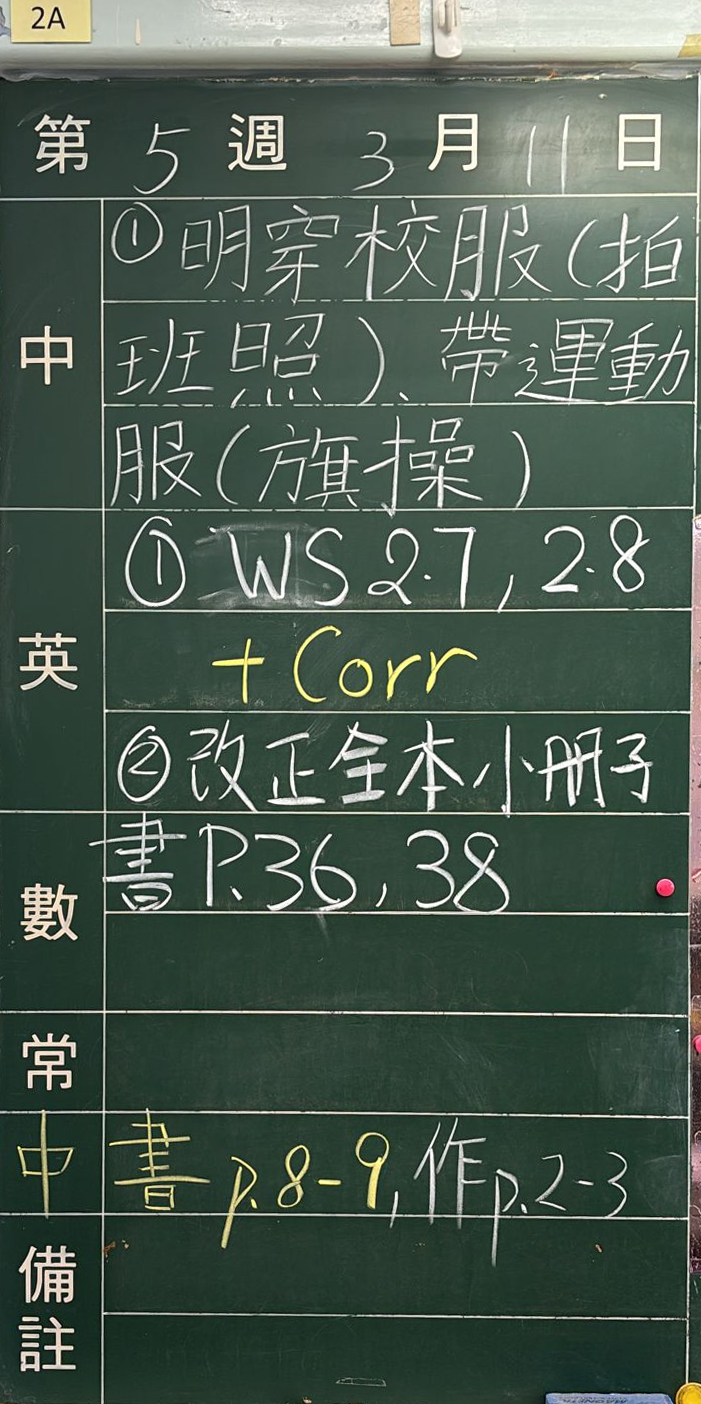 2A
第 5 週 3 月 11 日
中
①明穿校服(拍
班照)、帶運動
服(旗操)
英
① WS 2.7, 2.8
+ Corr
②改正全本小册子
數
書P.36, 38
常
中 書 p.8-9, 作p.2-3
備註